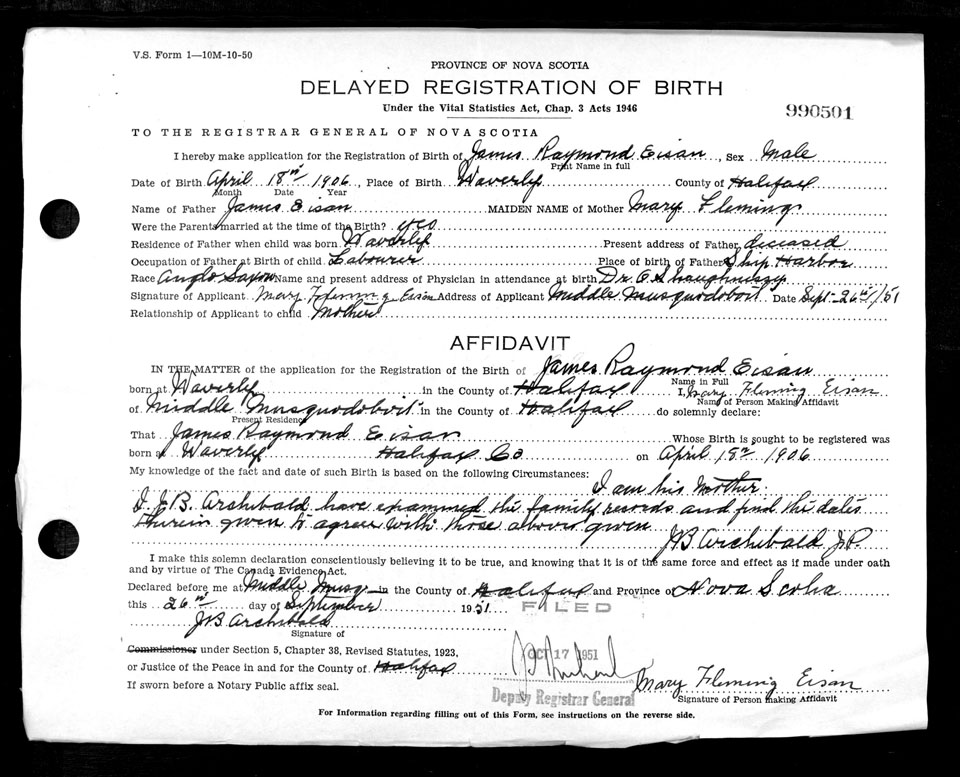 V.S. Form 1—10M-10-50
PROVINCE OF NOVA SCOTIA
DELAYED REGISTRATION OF BIRTH
Under the Vital Statistics Act, Chap. 3 Acts 1946
990501
TO THE REGISTRAR GENERAL OF NOVA SCOTIA
I hereby make application for the Registration of Birth of James Raymond Eisan, Sex Male
Print Name in full
Date of Birth April 18th 1906, Place of Birth Waverly County of Halifax
Month Date Year
Name of Father James Eisan MAIDEN NAME of Mother Mary Fleming
Were the Parents married at the time of the Birth? yes
Residence of Father when child was born Waverly Present address of Father deceased
Occupation of Father at Birth of child Labourer Place of birth of Father Ship Harbor
Race Anglo Saxon Name and present address of Physician in attendance at birth Dr. O Shaughnissy
Signature of Applicant Mary Fleming Eisan Address of Applicant Middle Musquodoboit Date Sept-26th/51
Relationship of Applicant to child Mother
AFFIDAVIT
IN THE MATTER of the application for the Registration of the Birth of James Raymond Eisan
Name in Full
born at Waverly in the County of Halifax I, Mary Fleming Eisan
Name of Person Making Affidavit
of Middle Musquodoboit in the County of Halifax do solemnly declare:
Present Residence
That James Raymond Eisan Whose Birth is sought to be registered was
born at Waverly Halifax Co on April 18th 1906
My knowledge of the fact and date of such Birth is based on the following Circumstances:
I am his Mother.
I. J.B. Archibald have examined the family records and find the dates
therein given to agree with those above given
JB Archibald J.P.
I make this solemn declaration conscientiously believing it to be true, and knowing that it is of the same force and effect as if made under oath
and by virtue of The Canada Evidence Act.
Declared before me at Middle Musq in the County of Halifax and Province of Nova Scotia
this 26th day of September 1951
FILED
JB Archibald
Signature of
Commissioner under Section 5, Chapter 38, Revised Statutes, 1923,
OCT 17 1951
or Justice of the Peace in and for the County of Halifax
Mary Fleming Eisan
If sworn before a Notary Public affix seal.
Deputy Registrar General
Signature of Person making Affidavit
For Information regarding filling out of this Form, see instructions on the reverse side.